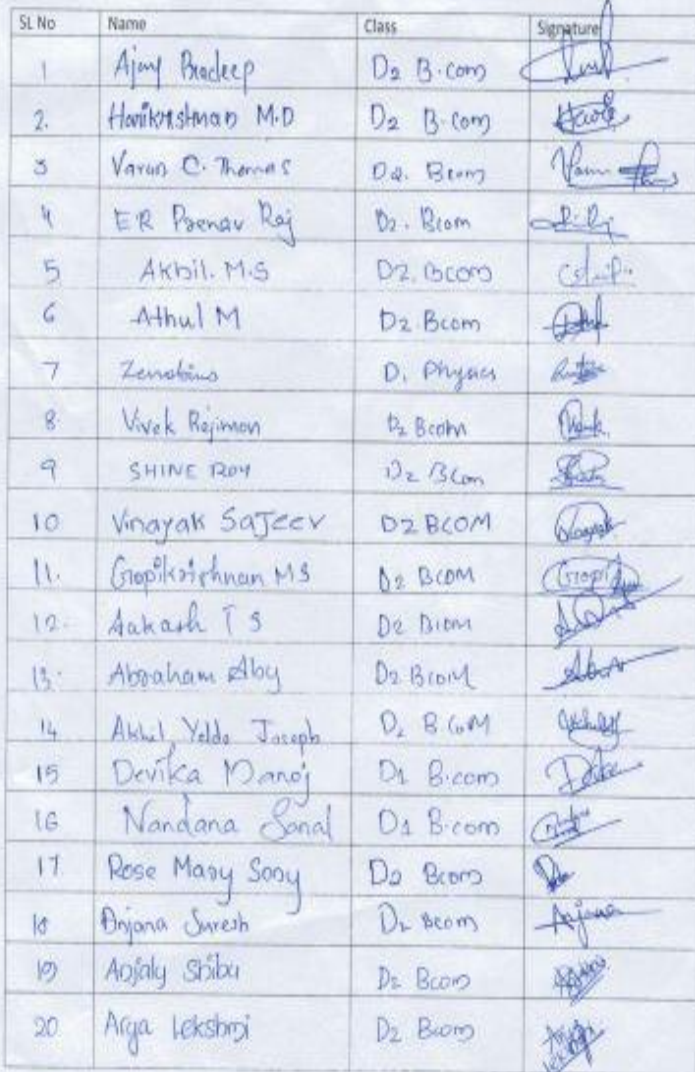 SL No Name Class Signature
1 Ajay Pradeep D2 B.com
2. Harikrishnan M.D D2 B.com
3 Varun C. Thomas D2. Bcom
4 E R Pranav Raj D2. Bcom
5 Akhil. M.S D2. Bcom
6 Athul M D2 Bcom
7 Zenobius D1 Physics
8 Vivek Rejimon D2 Bcom
9 SHINE ROY D2 BCom
10 Vinayak SaJeev D2 BCOM
11. Gopikrishnan MS D2 BCOM Gopi
12. Aakash T S D2 BCOM
13. Abraham Aby D2 BCOM
14 Akhil Yeldo Joseph D2 B.COM
15 Devika Manoj D1 B.com
16 Nandana Sonal D1 B.com
17 Rose Mary Sony D2 Bcom
18 Anjana Suresh D2 Bcom Anjana
19 Anjaly Shibu D2 Bcom
20 Arya Lekshmi D2 Bcom